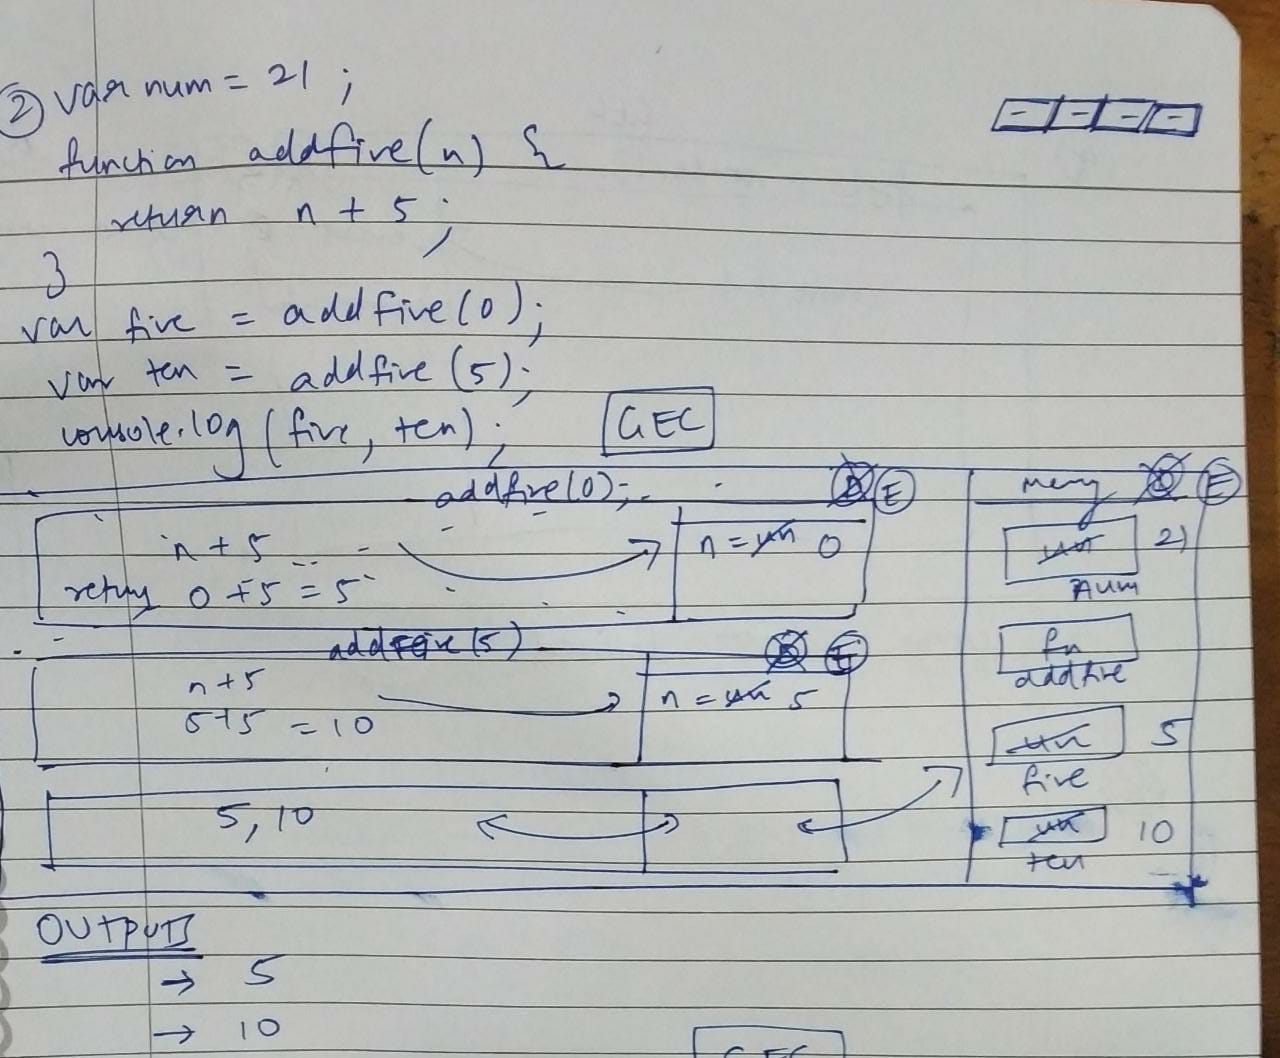 ② var num = 21 ;
function addfive(n) {
return n + 5 ;
}
var five = addfive(0);
var ten = addfive (5);
console.log (five, ten) ;
GEC
addfive(0);
E
n + 5
return 0 + 5 = 5
n = un 0
addfive (5)
E
n + 5
5+5 = 10
n = un 5
5, 10
E
un 21
num
fn
addfive
un 5
five
un 10
ten
OUTPUTS
→ 5
→ 10
GEC